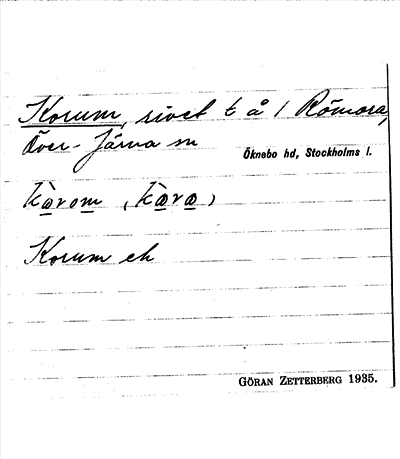 Korum, rivet t å / Römora,
Över-Järna sn
Öknebo hd, Stockholms l.
kò̱rom̱ (kò̱ra̱)
Korum ek
GÖRAN ZETTERBERG 1935.